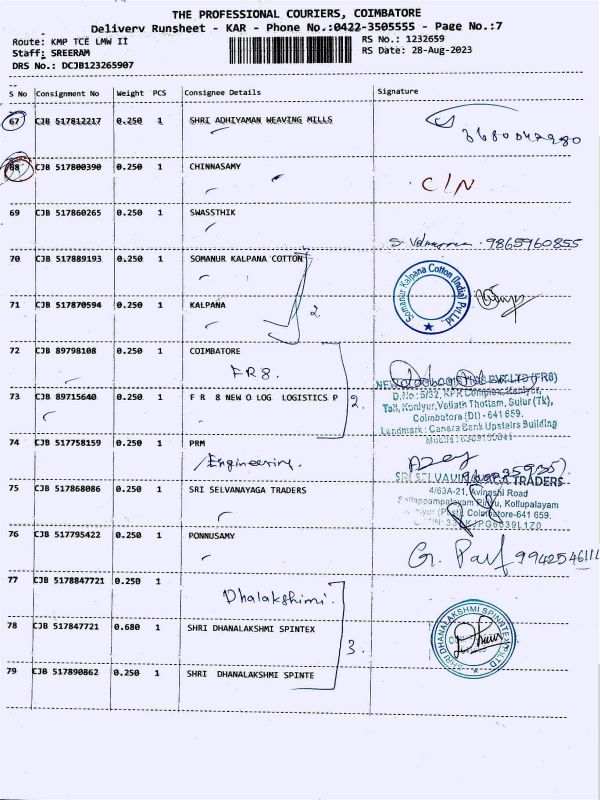 THE PROFESSIONAL COURIERS, COIMBATORE
Delivery Runsheet - KAR - Phone No.:0422-3505555 - Page No.:7
Route: KMP TCE LMW II
RS No.: 1232659
Staff: SREERAM
RS Date: 28-Aug-2023
DRS No.: DCJB123265907
S No Consignment No Weight PCS Consignee Details Signature
67 CJB 517812217 0.250 1 SHRI ADHIYAMAN WEAVING MILLS
68 CJB 517800390 0.250 1 CHINNASAMY C/N
69 CJB 517860265 0.250 1 SWASSTHIK
S. 9865960855
70 CJB 517889193 0.250 1 SOMANUR KALPANA COTTON
Somanur Kalpana Cotton (India) Pvt. Ltd.
71 CJB 517870594 0.250 1 KALPANA 2
72 CJB 89798108 0.250 1 COIMBATORE
FR8.
PVT LTD (FR8)
73 CJB 89715640 0.250 1 F R 8 NEW O LOG LOGISTICS P 2.
D.No: 5/32, KPR Complex, Kaniyur,
Kaniyur, Thottam, Sulur (Tk),
Coimbatore (Dt) - 641 659.
Landmark: Canara Bank Upstairs Building
74 CJB 517758159 0.250 1 PRM
Engineering.
75 CJB 517868086 0.250 1 SRI SELVANAYAGA TRADERS
SRI SELVAVINAYAGA TRADERS
4/63A-21, Avinashi Road
Kollupalayam
Coimbatore-641 659.
76 CJB 517795422 0.250 1 PONNUSAMY
G.
77 CJB 5178847721 0.250 1
Dhalakshimi.
78 CJB 517847721 0.680 1 SHRI DHANALAKSHMI SPINTEX
3.
SHRI DHANALAKSHMI SPINTEX
79 CJB 517890862 0.250 1 SHRI DHANALAKSHMI SPINTE